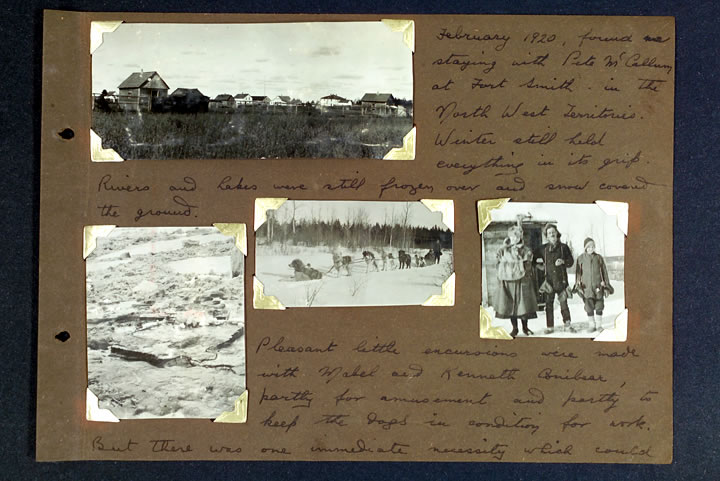 February 1920, found me
staying with Pete McCallum
at Fort Smith - in the
North West Territories.
Winter still held
everything in its grip.
Rivers and Lakes were still frozen over and snow covered
the ground.
Pleasant little excursions were made
with Mabel and Kenneth
partly for amusement and partly to
keep the dogs in condition for work.
But there was one immediate necessity which could